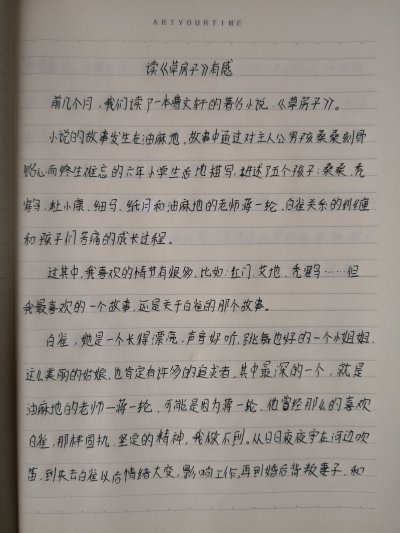 ARTYOURTIME
读《草房子》有感
前几个月，我们读了一本曹文轩的著名小说：《草房子》。
小说的故事发生在油麻地，故事中通过对主人公男孩桑桑刻骨
铭心而终生难忘的六年小学生活地描写，讲述了五个孩子：桑桑、秃
鹤、杜小康、细马、纸月和油麻地的老师蒋一轮、白雀关系的纠缠
和孩子们苦痛的成长过程。
这其中，我喜欢的情节有很多，比如：红门、艾地、秃鹤……但
我最喜欢的一个故事，还是关于白雀的那个故事。
白雀，她是一个长得漂亮，声音好听，跳舞也好的一个小姐姐，
这么美丽的姑娘，也肯定有许多的追求者，其中最深的一个，就是
油麻地的老师—蒋一轮，可能是因为蒋一轮，他曾经那么的喜欢
白雀，那样固执、坚定的精神，我做不到。从日日夜夜守在河边吹
笛，到失去白雀以后情绪大变，影响工作，再到婚后背叛妻子，和